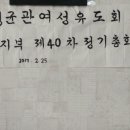 성균관여성유도회
지부 제40차 정기총회
2017. 2. 23